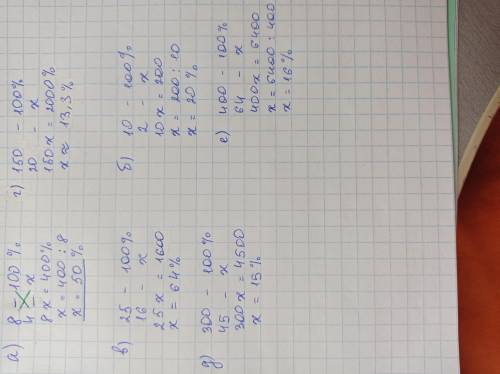 а) 8 - 100%
4 - x
8x = 400%
x = 400 : 8
x = 50%
б) 10 - 100%
2 - x
10x = 200
x = 200 : 10
x = 20%
в) 25 - 100%
16 - x
25x = 1600
x = 64%
г) 150 - 100%
20 - x
150x = 2000%
x ≈ 13,3%
д) 300 - 100%
45 - x
300x = 4500
x = 15%
е) 400 - 100%
64 - x
400x = 6400
x = 6400 : 400
x = 16%